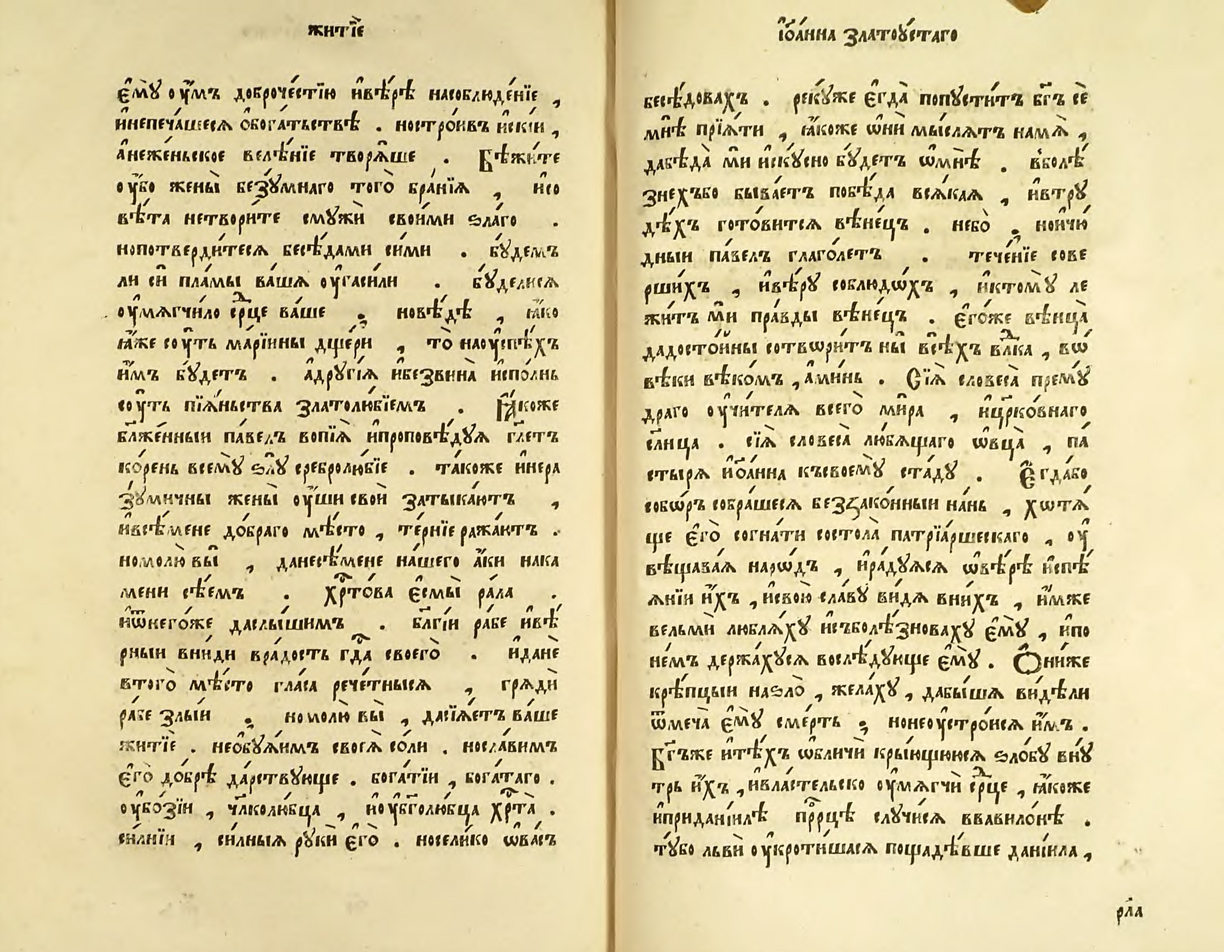 житїе
є҆мꙋ̀ оу҆́мъ доброче́стїю и҆вѣ́рѣ насоблюде́нїе ,
и҆непеча́шесѧ ѻ҆бога́тьствѣ . ностро́ивъ и҆скїи ,
а҆неже́ньское велѣ́нїе творѧ́ше . Бѣжи́те
оу҆́бо жены̀ безꙋ́мнаго того̀ бра́нїѧ , и҆со
вѣ́та нетвори́те смꙋжѝ свои́ми ѕла́го .
нопотверди́тесѧ бесѣ́дами си́ми . бꙋ́демъ
ли сѝ пла́мы ва́шѧ оу҆гаси́ли . бꙋ́делисѧ
оу҆мѧгчи́ло ср҃це ва́ше , новѣ́дѣ , ꙗ҆́ко
ꙗ҆́же сꙋть марїи́ны дще́ри , то̀ наоу҆спѣ́хъ
и҆̀мъ бꙋ́детъ . а҆дрꙋгі́ѧ и҆безвина̀ и҆спо́лнь
соу́ть пїѧ́ньства златолю́бїемъ . Ꙗ҆́коже
бл҃же́нныи па́велъ вопїѧ̀ и҆проповѣ́дꙋѧ гл҃етъ
ко́рень всемꙋ̀ ѕлꙋ̀ сребролю́бїе . та́коже и҆нера
зꙋ́мичны жены̀ оу҆́ши своѝ затыка́ютъ ,
и҆всѣ́мене до́браго мѣ́сто , те́рнїе ража́ютъ .
номолю̀ вы̀ , данесѣ́мене на́шего а҆́ки нака
мени сѣ́емъ . хрⷭ҇то́ва є҆смы̀ ра́ла .
и҆ѿнего́же даслы́шимъ . бл҃гі́и ра́бе и҆вѣ́
рныи вни́ди вра́дость гдⷭ҇а своего̀ . и҆дане
втого̀ мѣ́сто гла́са рече́тнысѧ , грѧдѝ
ра́бе злы́и , номолю̀ вы̀ , дасїѧ́етъ ва́ше
житїѐ . необꙋѧ́имъ своеѧ̀ со́ли . носла́вимъ
є҆го̀ до́брѣ да́рствꙋюще . бога́тїи , бога́таго .
оу҆бо́зїи , чл҃колю́бца , и҆оу҆бголю́бца хрⷭ҇та̀ .
си́лнїи , си́лныѧ рꙋ́ки є҆го̀ . носели́ко ѡ҆ва́съ
і҆ѡа́нна златоꙋ́стаго
бесѣ́довахъ . рекꙋ́же є҆гда̀ попꙋ́ститъ бг҃ъ сѐ
мнѣ̀ прїѧ́ти , ꙗ҆́коже ѡ҆нѝ мы́слѧтъ намѧ̀ ,
дабѣ́да мѝ и҆скꙋ́сно бꙋ́детъ ѡ҆мнѣ̀ . вболѣ́
знехъбо быва́етъ побѣ́да всѧ́каѧ , и҆втрꙋ
дѣ́хъ гото́витсѧ вѣне́цъ . небо̀ , нои҆чю́
дныи па́велъ глаго́летъ . тече́нїе сове
рши́хъ , и҆вѣ́рꙋ соблюдо́хъ , и҆ктомꙋ̀ ле
жи́тъ мѝ пра́вды вѣне́цъ . є҆го́же вѣнца̀
дадосто́ины сотвори́тъ ны̀ всѣ́хъ влⷣка , вѡ҆
вѣ́ки вѣко́мъ , а҆ми́нь . Сїѧ̀ словеса̀ премꙋ́
драго оу҆чи́телѧ всего̀ ми́ра , и҆црⷦ҇о́внаго
сл҃нца . сїѧ̀ словеса̀ лю́бѧщаго ѡ҆вца̀ , па́
стырѧ и҆ѡа́нна късвоемꙋ̀ ста́дꙋ . Е҆гда́бо
собо́ръ собра́шесѧ беззако́нныи на́нь , хотѧ́
ще є҆го̀ согна́ти состола̀ патрїа́ршескаго , оу҆
вѣщава́ѧ наро́дъ , и҆ра́дꙋѧсѧ ѡ҆вѣ́рѣ и҆спѣ
ѧ́нїи и҆́хъ , и҆свою̀ сла́вꙋ ви́дѧ вни́хъ , и҆́мже
вельмѝ люблѧ́хꙋ и҆съболѣ́зновахꙋ є҆мꙋ̀ , и҆по
не́мъ держа́хꙋсѧ вослѣ́дꙋюще є҆мꙋ̀ . Ѻ҆ни́же
крѣ́пцыи наѕло̀ , жела́хꙋ , дабы́шѧ ви́дѣли
ѿмеча̀ є҆мꙋ̀ сме́рть , нонеоу҆стро́исѧ и҆́мъ .
Бг҃ъже и҆тѣ́хъ ѡ҆бличѝ кры́ющꙋюсѧ ѕло́бꙋ внꙋ́
трь и҆́хъ , и҆вла́стельско оу҆мѧгчѝ срⷣце , ꙗ҆́коже
и҆придані́илѣ прⷪ҇рцѣ слꙋчи́сѧ ввавило́нѣ .
тꙋ́бо львѝ оу҆кроти́шасѧ пощадѣ́вше дані́ила ,
рл҃а